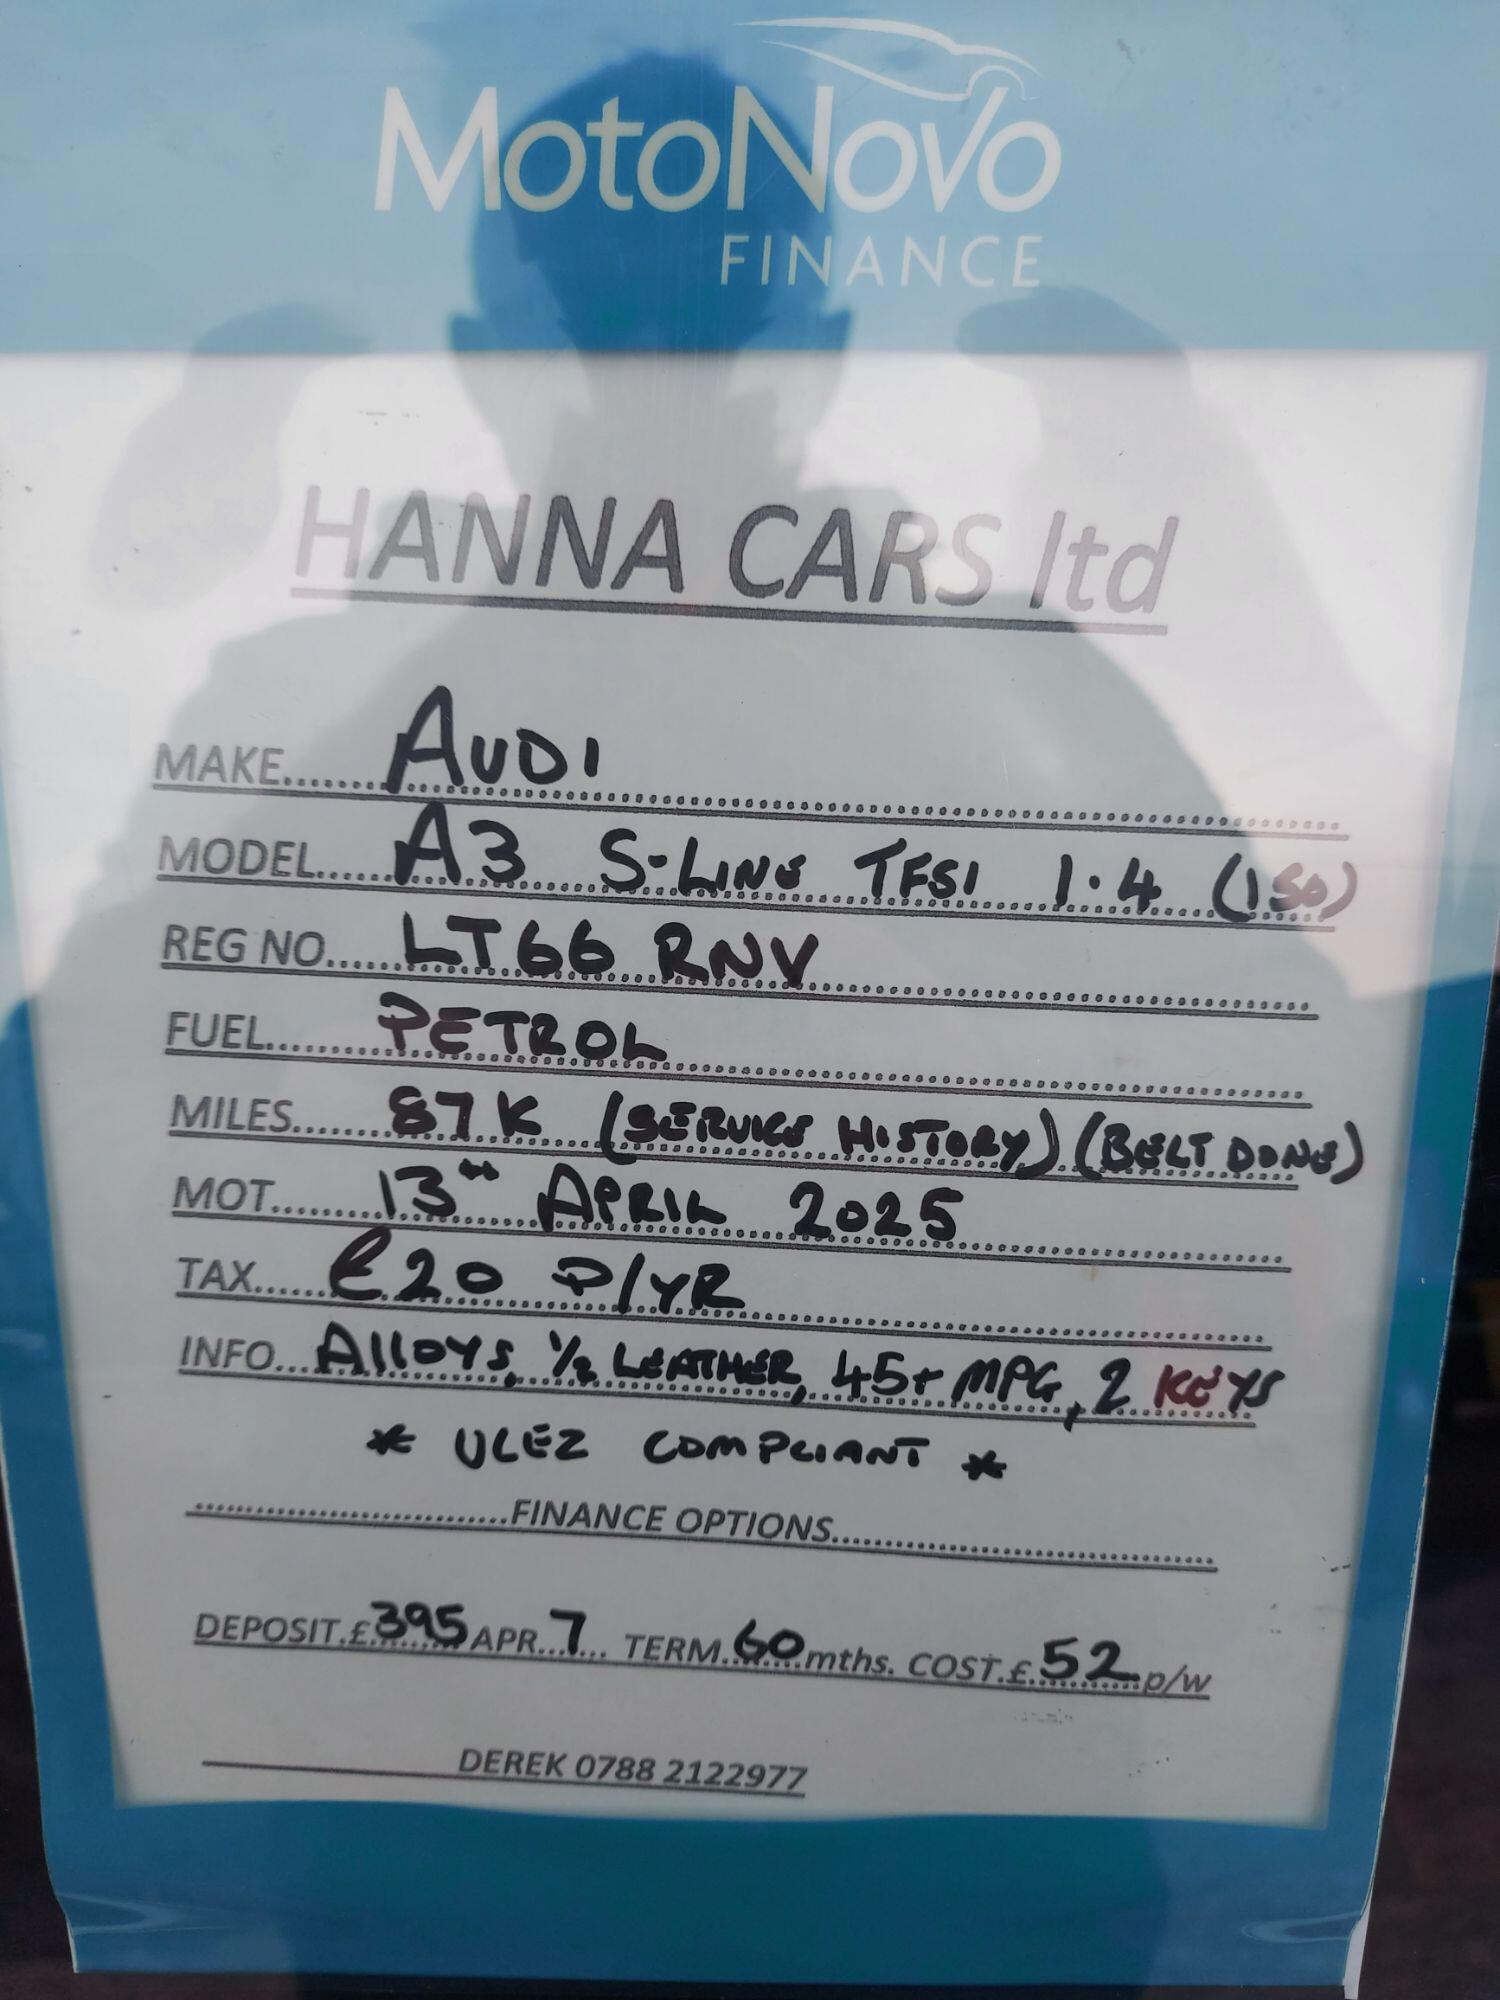 MotoNovo
FINANCE
HANNA CARS ltd
MAKE......AUDI
MODEL....A3 S-LINE TFSI 1.4 (150)
REG NO....LT66 RNV
FUEL......PETROL
MILES......87K (SERVICE HISTORY) (BELT DONE)
MOT......13TH APRIL 2025
TAX.....£20 P/YR
INFO...Alloys, 1/2 LEATHER, 45+ MPG, 2 KEYS
* ULEZ COMPLIANT *
......FINANCE OPTIONS......
DEPOSIT.£395 APR...7... TERM.60 mths. COST.£.52 p/w
DEREK 0788 2122977